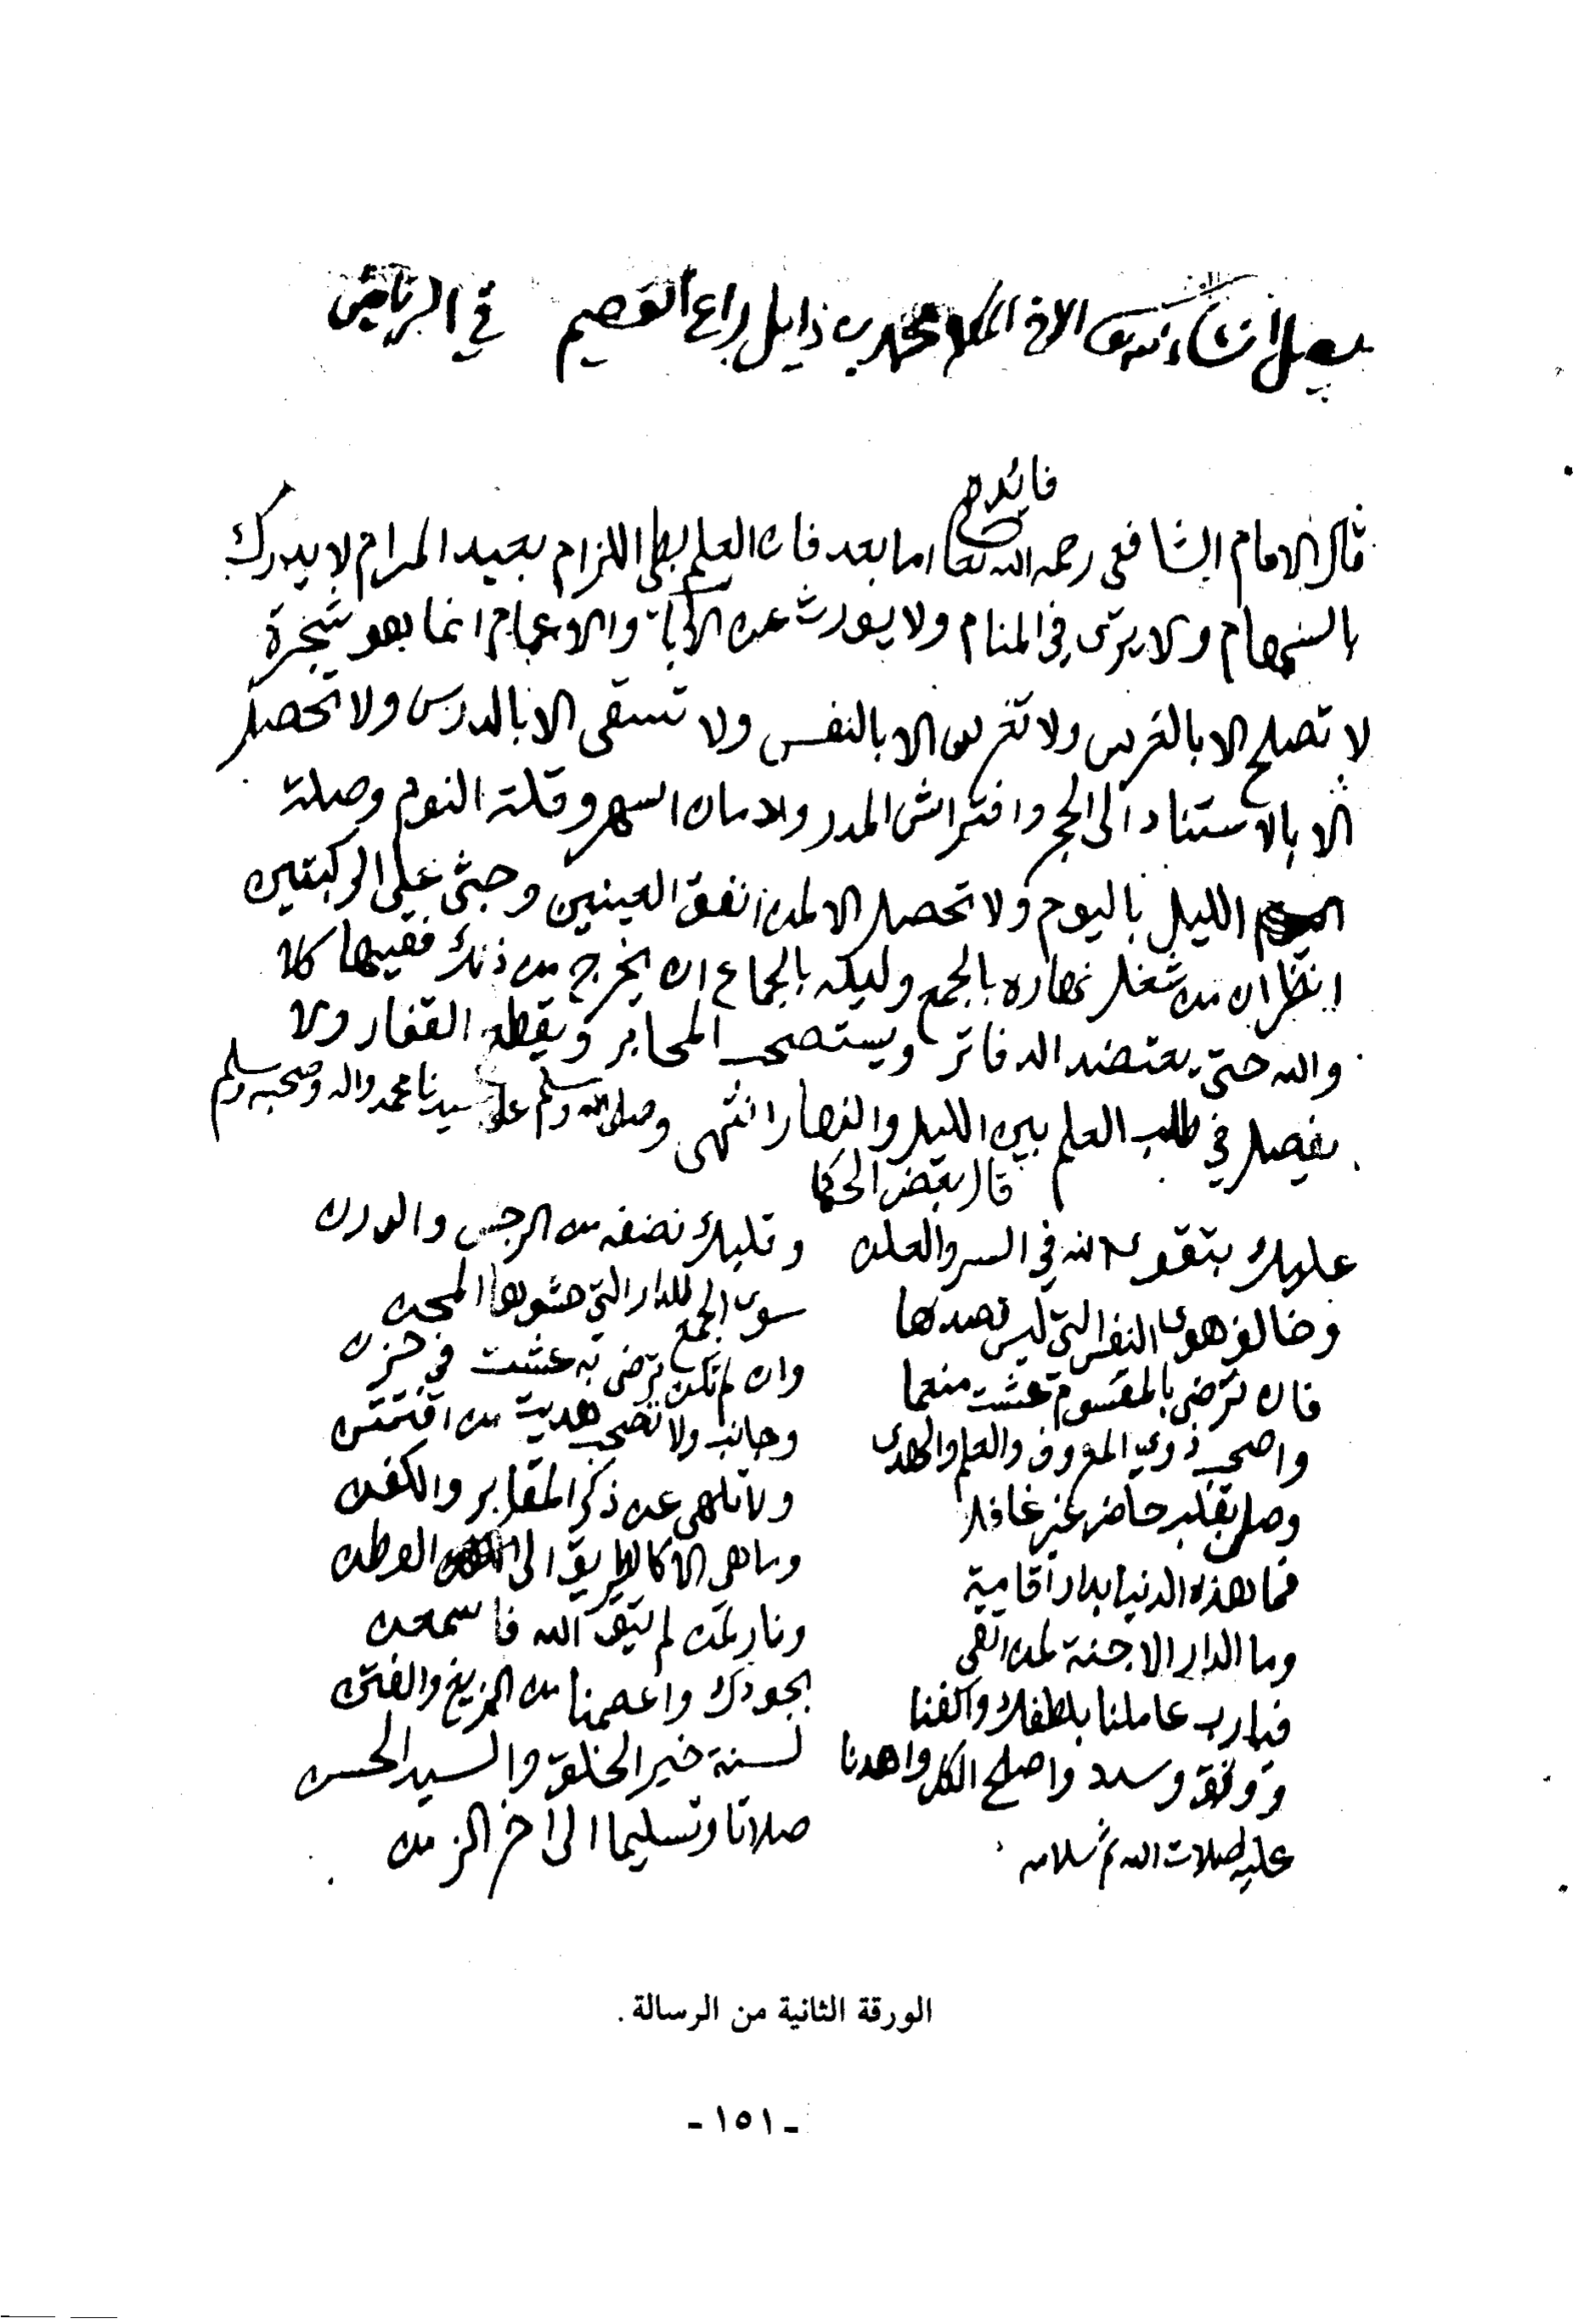 يصل انشاء الله الاخ المكرم محمد بن ذايل راع القصيم في الرياض
فائده
قال الامام الشافعي رحمه الله تعا اما بعد فان العلم بطي اللزام بعيد المرام لا يدرك
بالسهام ولا يرى في المنام ولا يورث عن الآباء والاعمام انما هو شجرة
لا تصلح الا بالغرس ولا تغرس الا بالنفس ولا تسقى الا بالدرس ولا تحصل
الا بالاستناد الى الحجر وافتراش المدر وادمان السهر وقلة النوم وصلة
الليل باليوم ولا تحصل الا لمن انفق العينين وجثى على الركبتين
اتظن ان من شغل نهاره بالجمع وليله بالجماع ان يخرج من ذلك فقيها كلا
والله حتى يعتضد الدفاتر ويستصحب المحابر ويقطع القفار ولا
يفصل في طلب العلم بين الليل والنهار انتهى وصلى الله وسلم على سيدنا محمد واله وصحبه وسلم
قال بعض الحكما
عليك بتقوى الله في السر والعلن وقلبك نضفه من الرجس والدرن
وخالف هوى النفس التي ليس قصدها سوى الجمع للدار التي حشوها المحن
فان ترضى بالمقسوم عشت منعما وان لم تكن ترضى به عشت في حزن
واصحب ذوي المعروف والعلم والهدى وجانب ولا تصحب هديت من افتتن
وصلي بقلب حاضر غير غافل ولا تلهى عن ذكر المقابر والكفن
فما هذه الدنيا بدار اقامة وما هي الا كالطريق الى الوطن
وما الدار الا جنة لمن اتقى ونار لمن لم يتق الله فاسمعن
فيارب عاملنا بلطفك واكفنا بجودك واعصمنا من الزيغ والفتن
ووفق وسدد واصلح الكل واهدنا لسنة خير الخلق والسيد الحسن
عليه صلات الله ثم سلامه صلاتا وتسليما الى اخر الزمن
الورقة الثانية من الرسالة.
- ١٥١ -